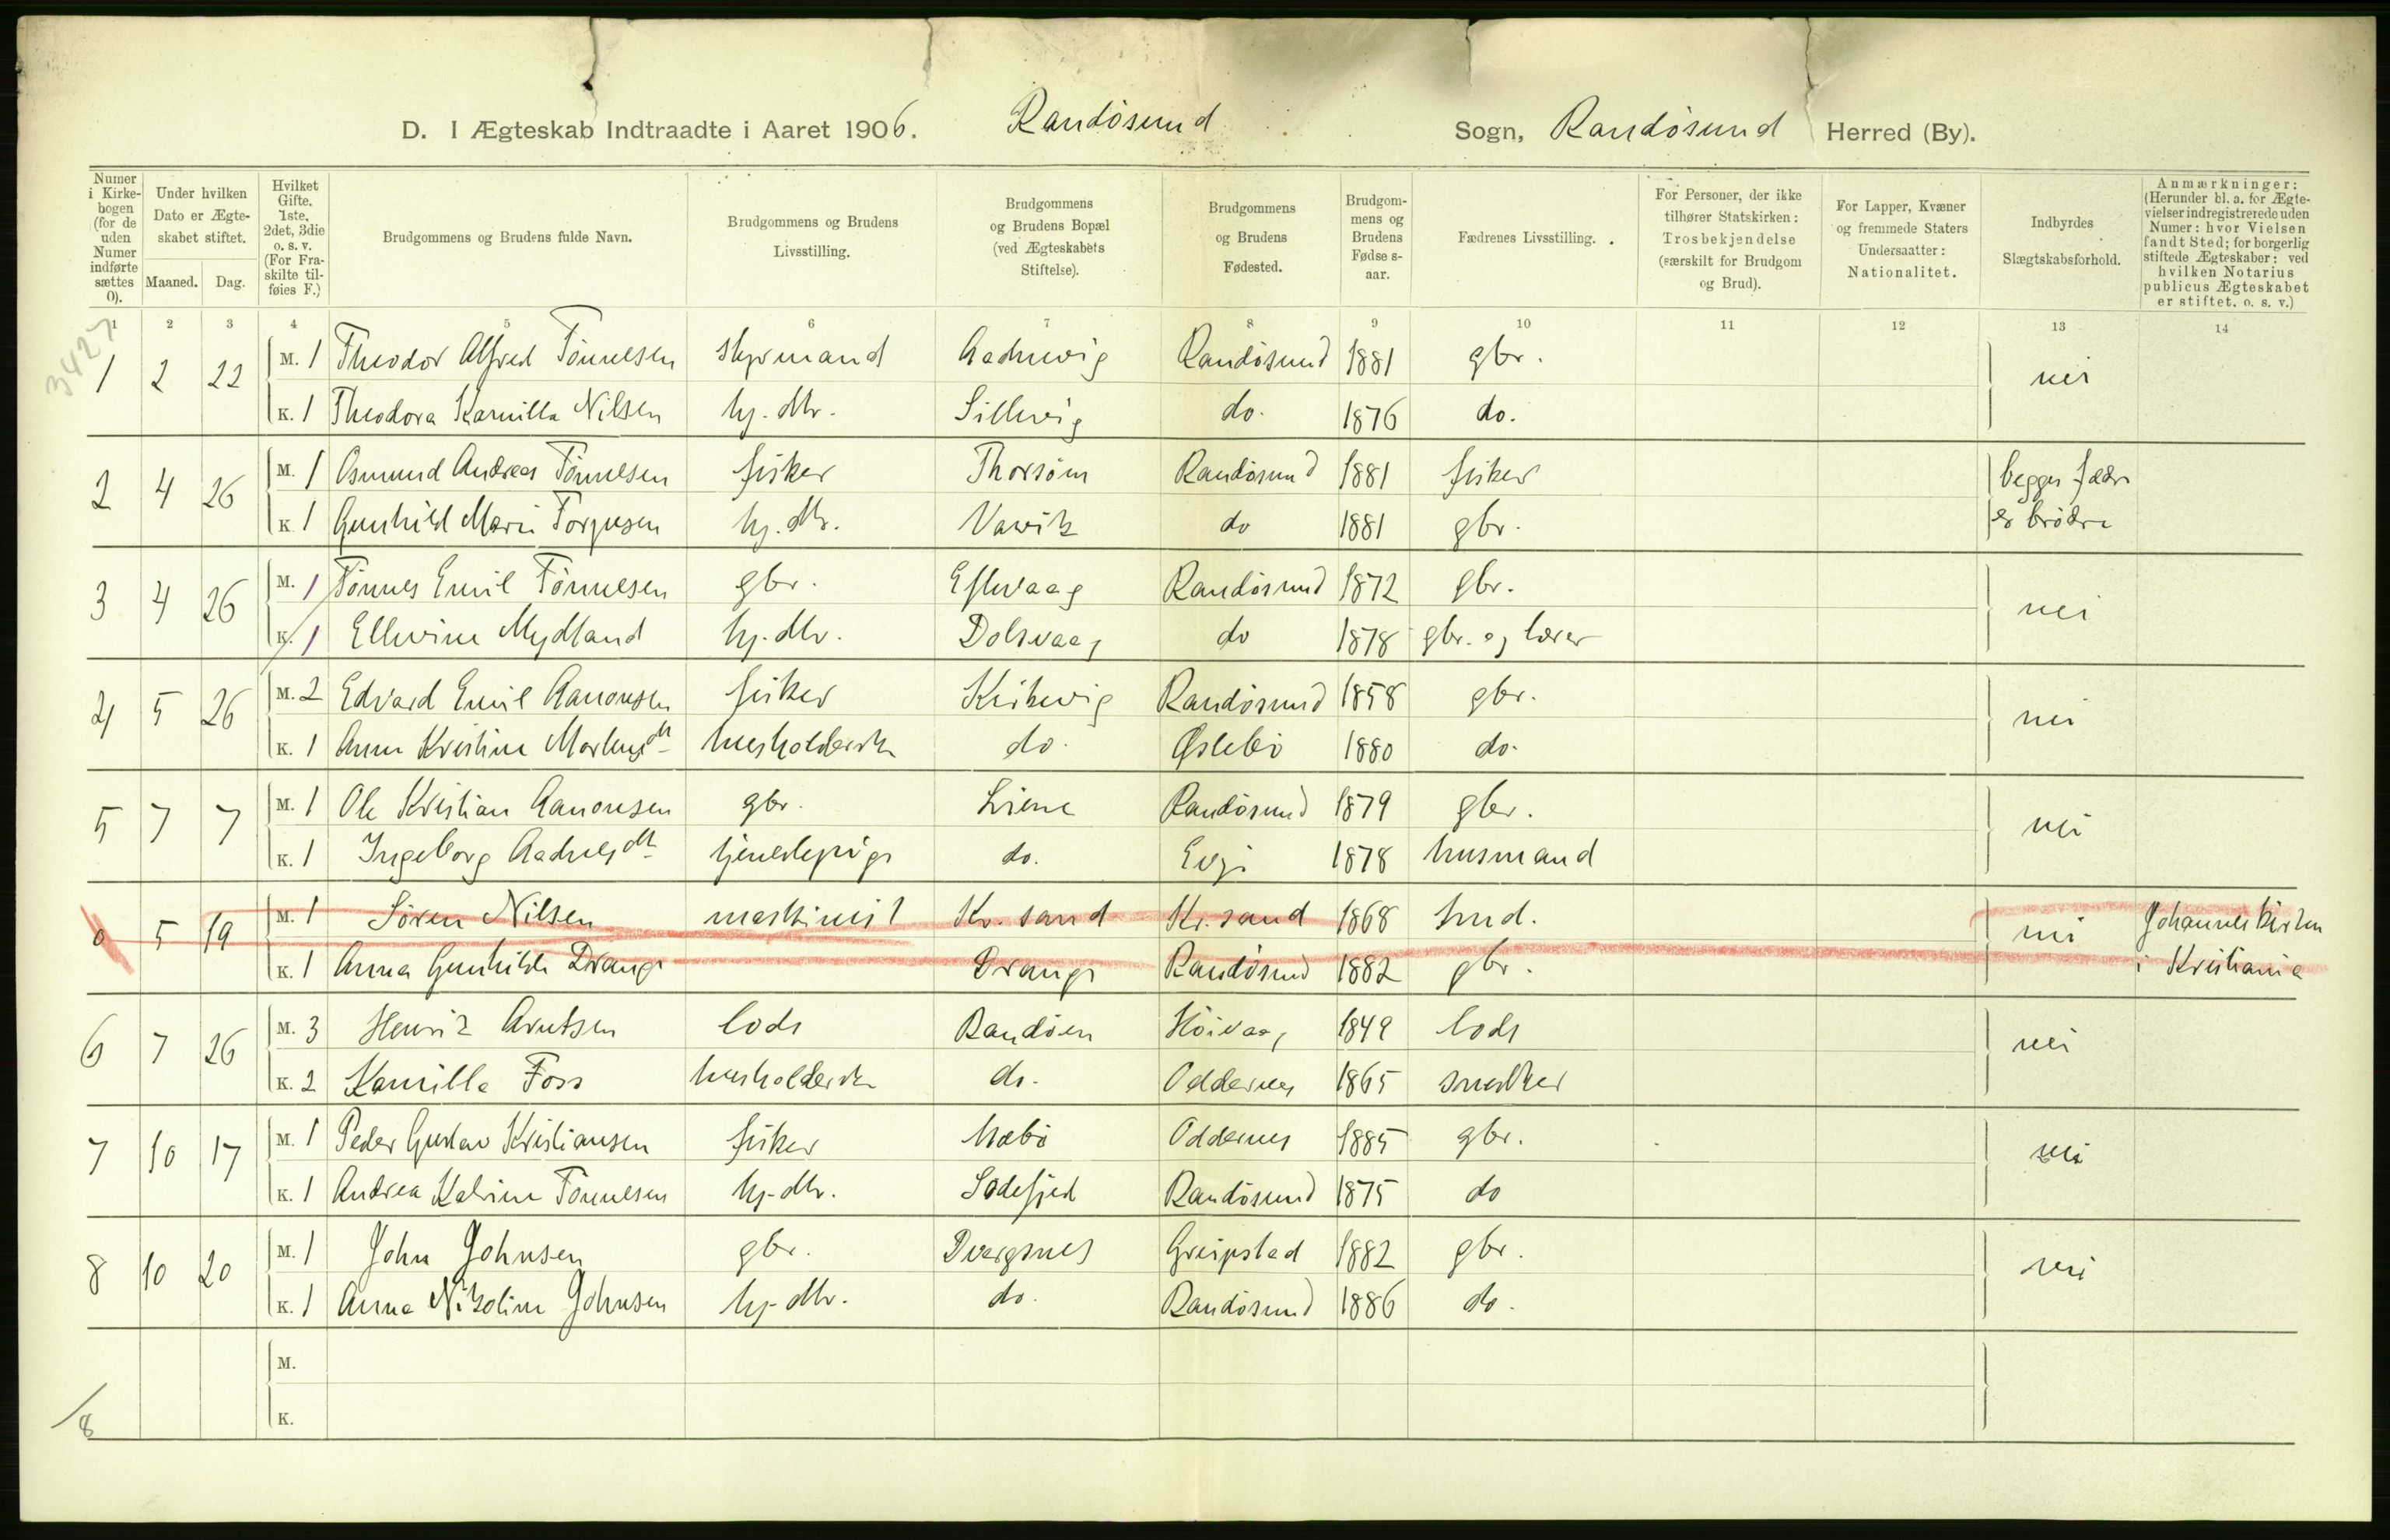 D. I Ægteskab Indtraadte i Aaret 1906. Randösund Sogn, Randösund Herred (By).
Numer i Kirkebogen (for de uden Numer indførte sættes 0).
Under hvilken Dato er Ægteskabet stiftet.
Maaned. Dag.
Hvilket Gifte. 1ste, 2det, 3die o. s. v. (For Fraskilte tilføies F.)
Brudgommens og Brudens fulde Navn.
Brudgommens og Brudens Livsstilling.
Brudgommens og Brudens Bopæl (ved Ægteskabets Stiftelse).
Brudgommens og Brudens Fødested.
Brudgommens og Brudens Fødselsaar.
Fædrenes Livsstilling.
For Personer, der ikke tilhører Statskirken: Trosbekjendelse (særskilt for Brudgom og Brud).
For Lapper, Kvæner og fremmede Staters Undersaatter: Nationalitet.
Indbyrdes Slægtskabsforhold.
Anmærkninger: (Herunder bl. a. for Ægtevielser indregistrerede uden Numer: hvor Vielsen fandt Sted; for borgerlig stiftede Ægteskaber: ved hvilken Notarius publicus Ægteskabet er stiftet. o. s. v.)
1 2 3 4 5 6 7 8 9 10 11 12 13 14
3427
1 2 22 M. 1 Theodor Alfred Tönnesen styrmand Aadnevig Randösund 1881 gbr. nei
K. 1 Theodora Kamilla Nilsen hj. dtr. Sillevig do. 1876 do.
2 4 26 M. 1 Osmund Andreas Tönnesen fisker Thorsöm Randösund 1881 fisker begges fædre
K 1 Gunhild Marie Torjusen hj. dtr. Varvik do 1881 gbr. er brödre
3 4 26 M. 1 Tönnes Emil Tönnesen gbr. Eftevaag Randösund 1872 gbr. nei
K. 1 Ellevine Mydland hj. dtr. Dolsvaag do 1878 gbr. og lærer
4 5 26 M. 2 Edvard Emil Aanonsen fisker Kirkevig Randösund 1858 gbr. nei
K. 1 Anne Kristine Martensdtr husholderske do. Øslebö 1880 do.
5 7 7 M. 1 Ole Kristian Aanonsen gbr. Liene Randösund 1879 gbr. nei
K. 1 Ingeborg Aadnesdtr tjenestepige do. Evje 1878 husmand
0 5 19 M. 1 Sören Nilsen maskinist Kr. sand Kr. sand 1868 nei Johanneskirken
K. 1 Anna Gunhilde Drange Drange Randösund 1882 gbr. i Kristiania
6 7 26 M. 3 Henrik Arntsen lods Randöen Höivaag 1849 lods nei
K. 2 Kamilla Foss husholderske do. Oddernes 1865 snedker
7 10 17 M. 1 Peder Gustav Kristiansen fisker Mæbö Oddernes 1885 gbr. nei
K. 1 Andrea Katrine Tönnesen hj. dtr. Sodefjed Randösund 1875 do
8 10 20 M. 1 John Johnsen gbr. Dvergsnes Greipstad 1882 gbr. nei
K. 1 Anna Nikoline Johnsen hj. dtr. do. Randösund 1886 do.
M.
K.
/8